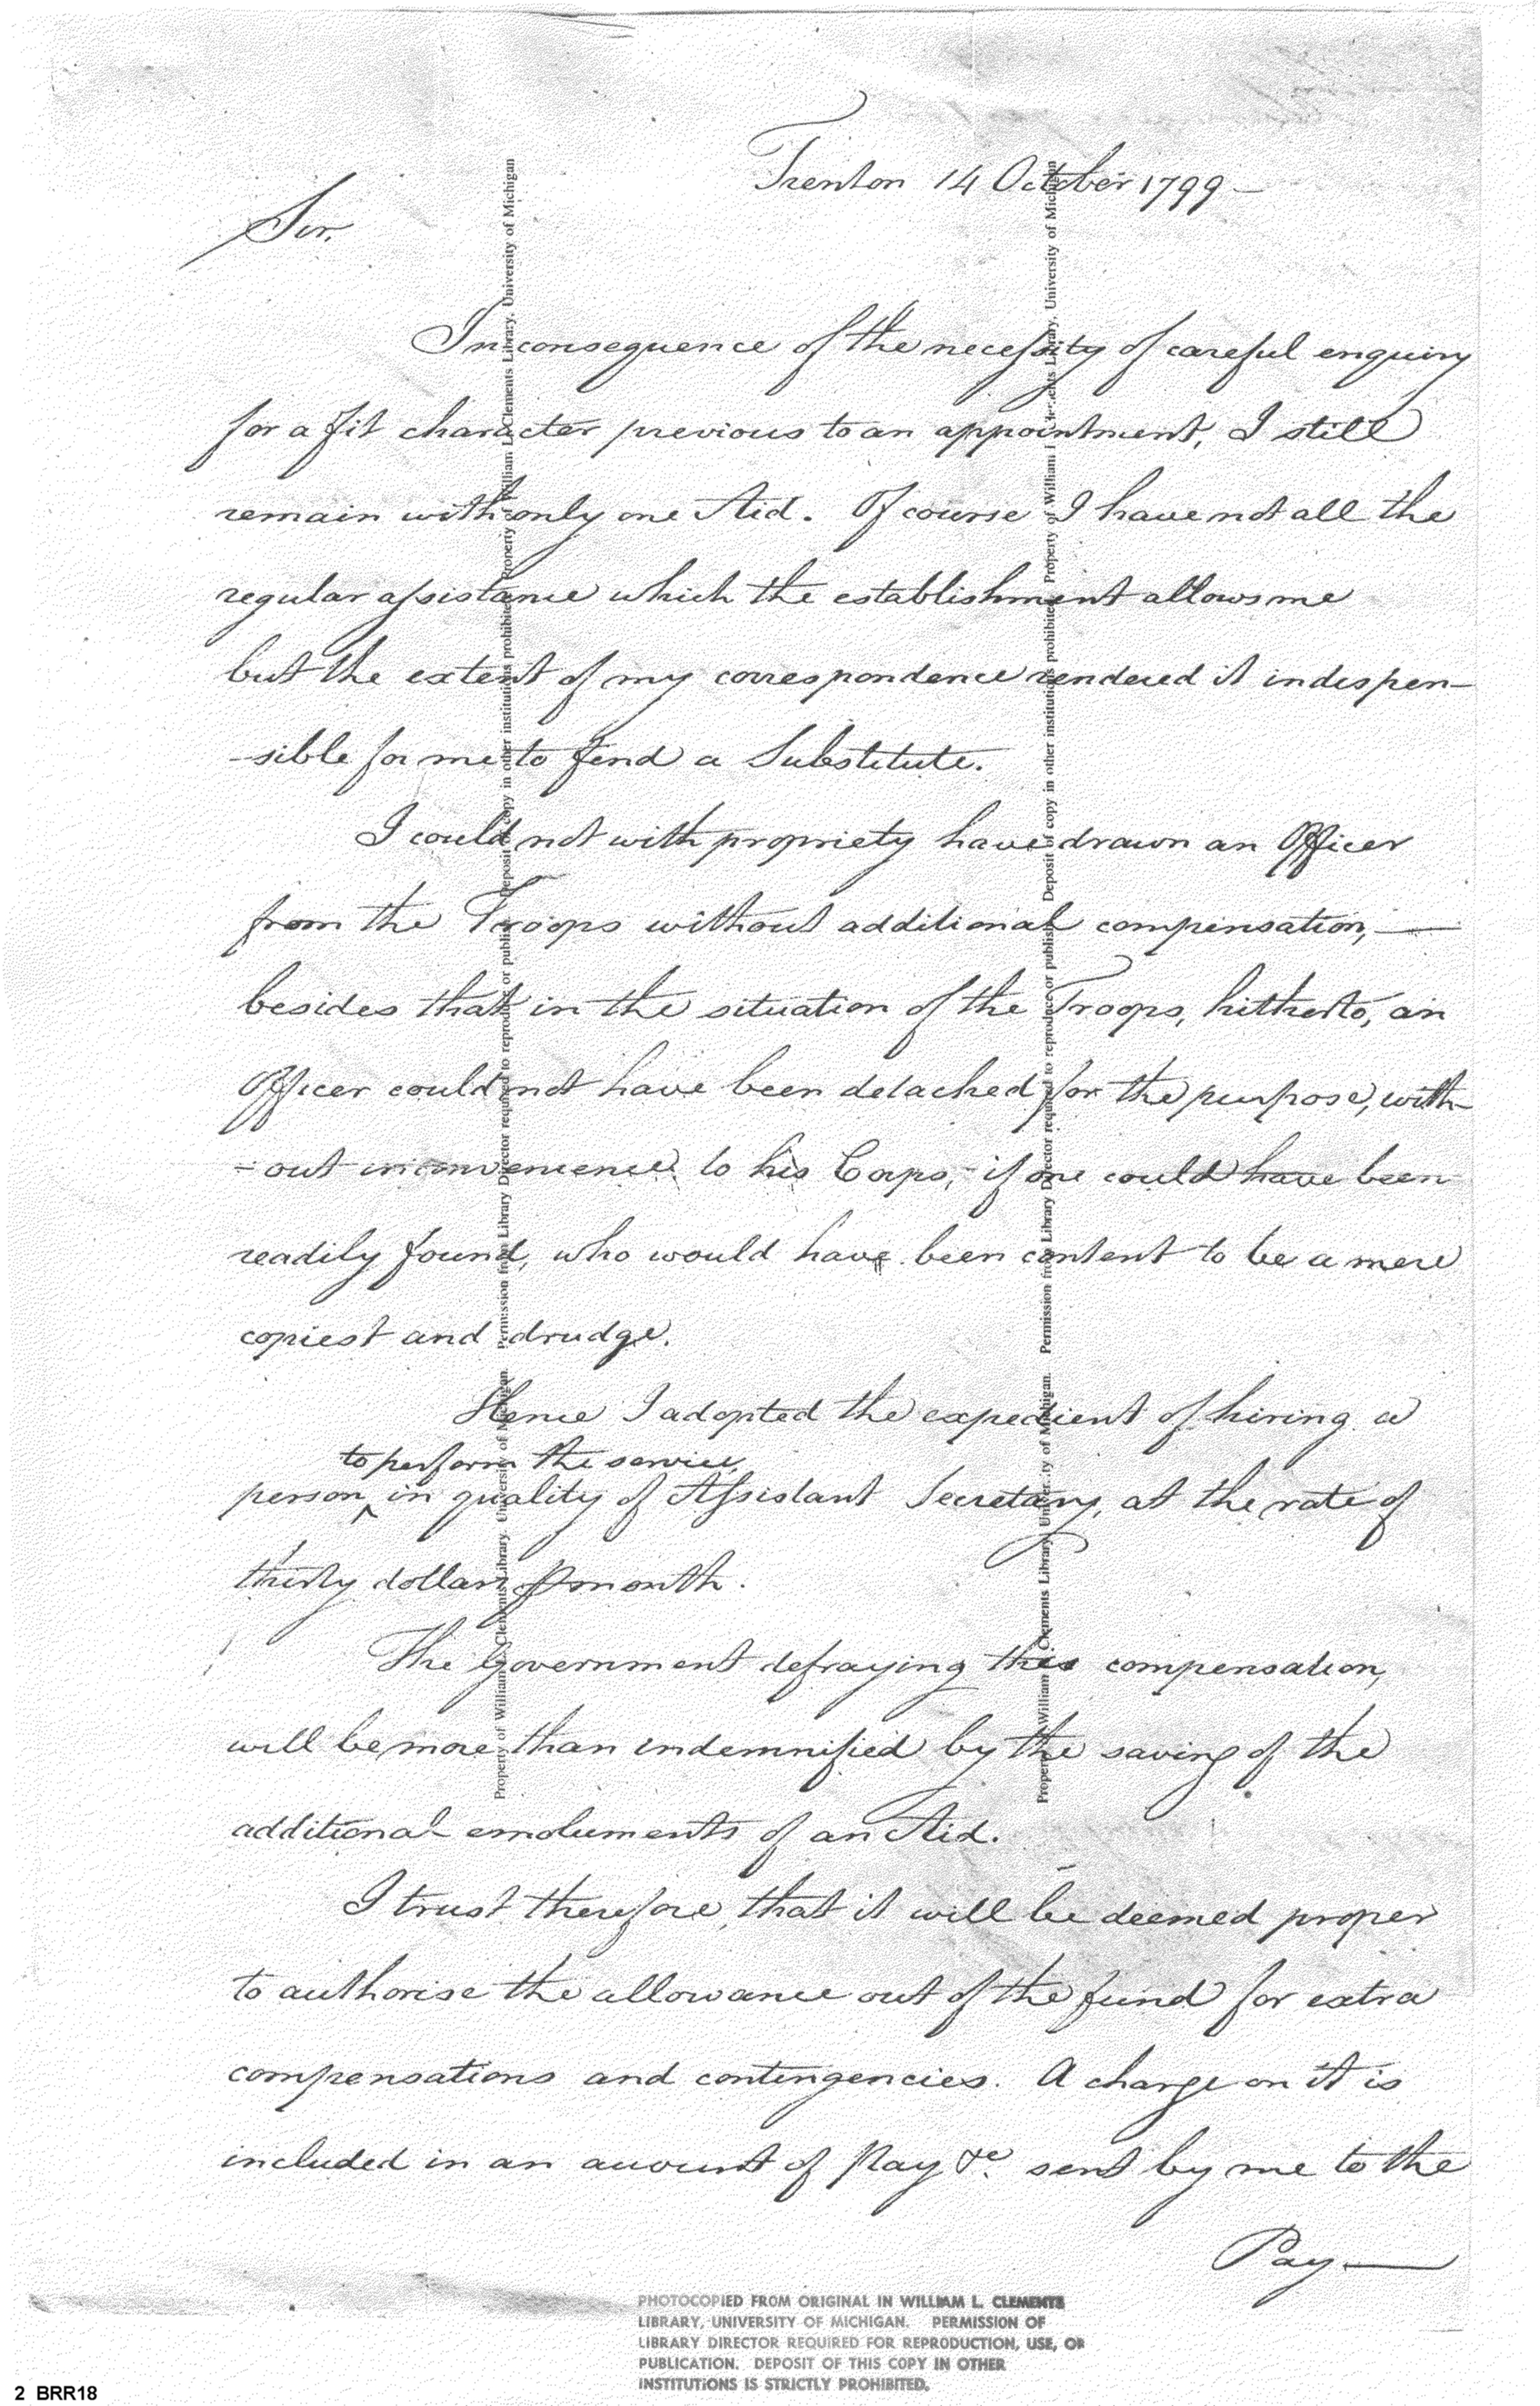 Trenton 14 October 1799—
Sir.
In consequence of the necessity of careful enquiry
for a fit character previous to an appointment, I still
remain with only one Aid. Of course I have not all the
regular assistance which the establishment allows me
but the extent of my correspondence rendered it indispen-
-sible for me to find a Substitute.
I could not with propriety have drawn an Officer
from the Troops without additional compensation, —
besides that in the situation of the Troops, hitherto, an
Officer could not have been detached for the purpose, with-
-out inconvenience to his Corps, if one could have been
readily found, who would have been content to be a mere
copiest and drudge.
Hence I adopted the expedient of hiring a
to perform the service,
person ^ in quality of Assistant Secretary, at the rate of
thirty dollars ⅌ month.
The Government defraying this compensation,
will be more than indemnified by the saving of the
additional emoluments of an Aid.
I trust therefore, that it will be deemed proper
to authorise the allowance out of the fund for extra
compensations and contingencies. A charge on it is
included in an account of Pay &c. sent by me to the
Pay—
Property of William L. Clements Library. University of Michigan. Permission from Library Director required to reproduce or publish. Deposit of copy in other institutions prohibited. Property of William L. Clements Library. University of Michigan
Property of William L. Clements Library. University of Michigan. Permission from Library Director required to reproduce or publish. Deposit of copy in other institutions prohibited. Property of William L. Clements Library. University of Michigan
PHOTOCOPIED FROM ORIGINAL IN WILLIAM L. CLEMENTS
LIBRARY, UNIVERSITY OF MICHIGAN. PERMISSION OF
LIBRARY DIRECTOR REQUIRED FOR REPRODUCTION, USE, OR
PUBLICATION. DEPOSIT OF THIS COPY IN OTHER
INSTITUTIONS IS STRICTLY PROHIBITED.
2 BRR18